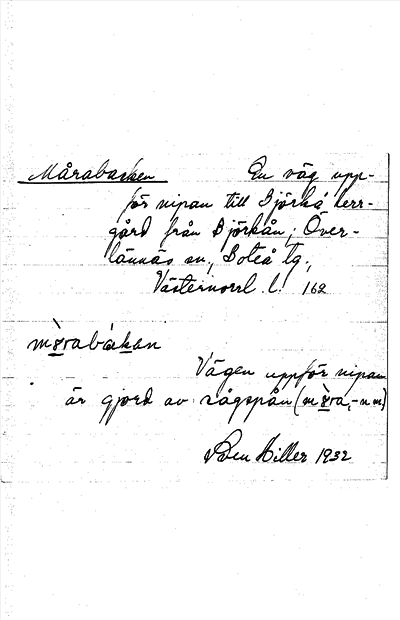 Mårabacken
En väg upp-
för nipan till Björkå herr-
gård från Björkån, Över-
lännäs sn., Boteå tg.,
Västernorrl. l. 162
Vägen uppför nipan
är gjord av sågspån (
Sven Hiller 1932